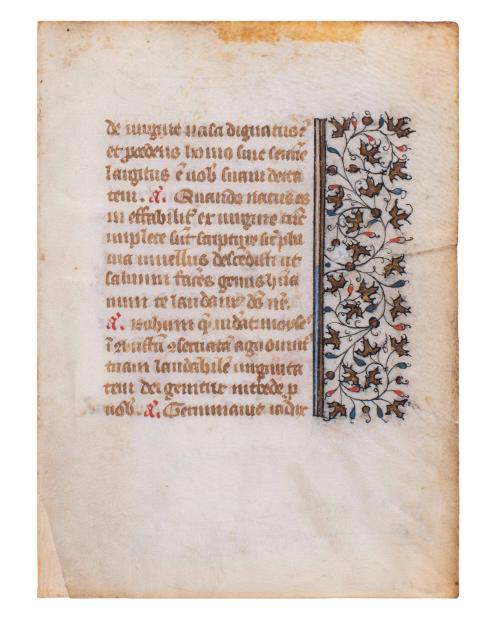 de virgine nasci dignatus ē
et p̄cedens homo sine semīe
largitus ē nob̄ suam deita
tem. a. Quando natus es
in effabilit̄ ex virgine tūc
implete sūt scripture sic̄ plu
uia in uellus descēdisti ut
saluum facēs genus hūa
num te laudam̄ d̄s nr̄.
a. Rubum q̄ uid̄at moyses
ī 9bustū 9seruatā agnouim̄
tuam laudabilē uirginita
tem dei genitrix intcede p
nob̄. a. Germinauit radix